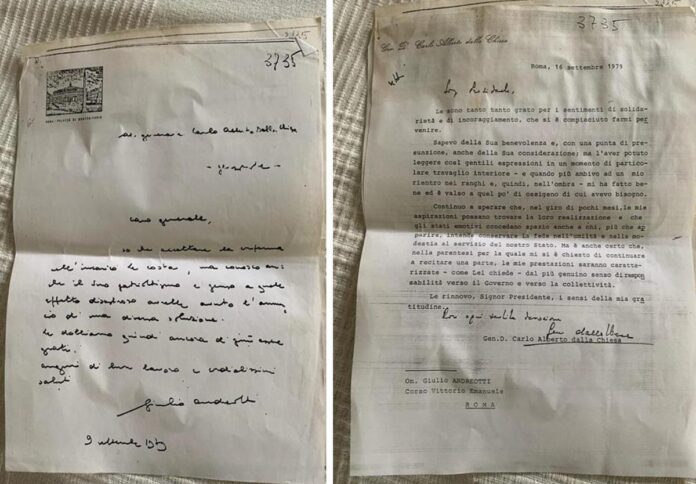 3735
ROMA - PALAZZO DI MONTECITORIO
al generale Carlo Alberto Dalla Chiesa
caro generale,
so che accettare la conferma
nell'incarico le costa, ma conosco anche
che il Suo patriottismo e
effetto avrebbe avuto l'annun
cio di una diversa soluzione.
Le dobbiamo quindi ancora di più essere
grati.
auguri di buon lavoro e cordialissimi
saluti
Giulio Andreotti
9 settembre 1979
3735
Gen. D. Carlo Alberto dalla Chiesa
Roma, 16 settembre 1979
Sig. Presidente,
Le sono tanto tanto grato per i sentimenti di solida-
rietà e di incoraggiamento, che si è compiaciuto farmi per-
venire.
Sapevo della Sua benevolenza e, con una punta di pre-
sunzione, anche della Sua considerazione; ma l'aver potuto
leggere così gentili espressioni in un momento di partico-
lare travaglio interiore - e quando più ambivo ad un mio
rientro nei ranghi e, quindi, nell'ombra - mi ha fatto be-
ne ed è valso a quel po' di ossigeno di cui avevo bisogno.
Continuo a sperare che, nel giro di pochi mesi, le mie
aspirazioni possano trovare la loro realizzazione e che
gli stati emotivi concedano spazio anche a chi, più che ap
parire, intende conservare la fede nell'umiltà e nella mo-
destia al servizio del nostro Stato. Ma è anche certo che,
nella parentesi per la quale mi si è chiesto di continuare
a recitare una parte, le mie prestazioni saranno caratte-
rizzate - come Lei chiede - dal più genuino senso di respon
sabilità verso il Governo e verso la collettività.
Le rinnovo, Signor Presidente, i sensi della mia gra
titudine.
Con ogni sentita devozione
Gen. D. Carlo Alberto dalla Chiesa
On. Giulio ANDREOTTI
Corso Vittorio Emanuele
ROMA